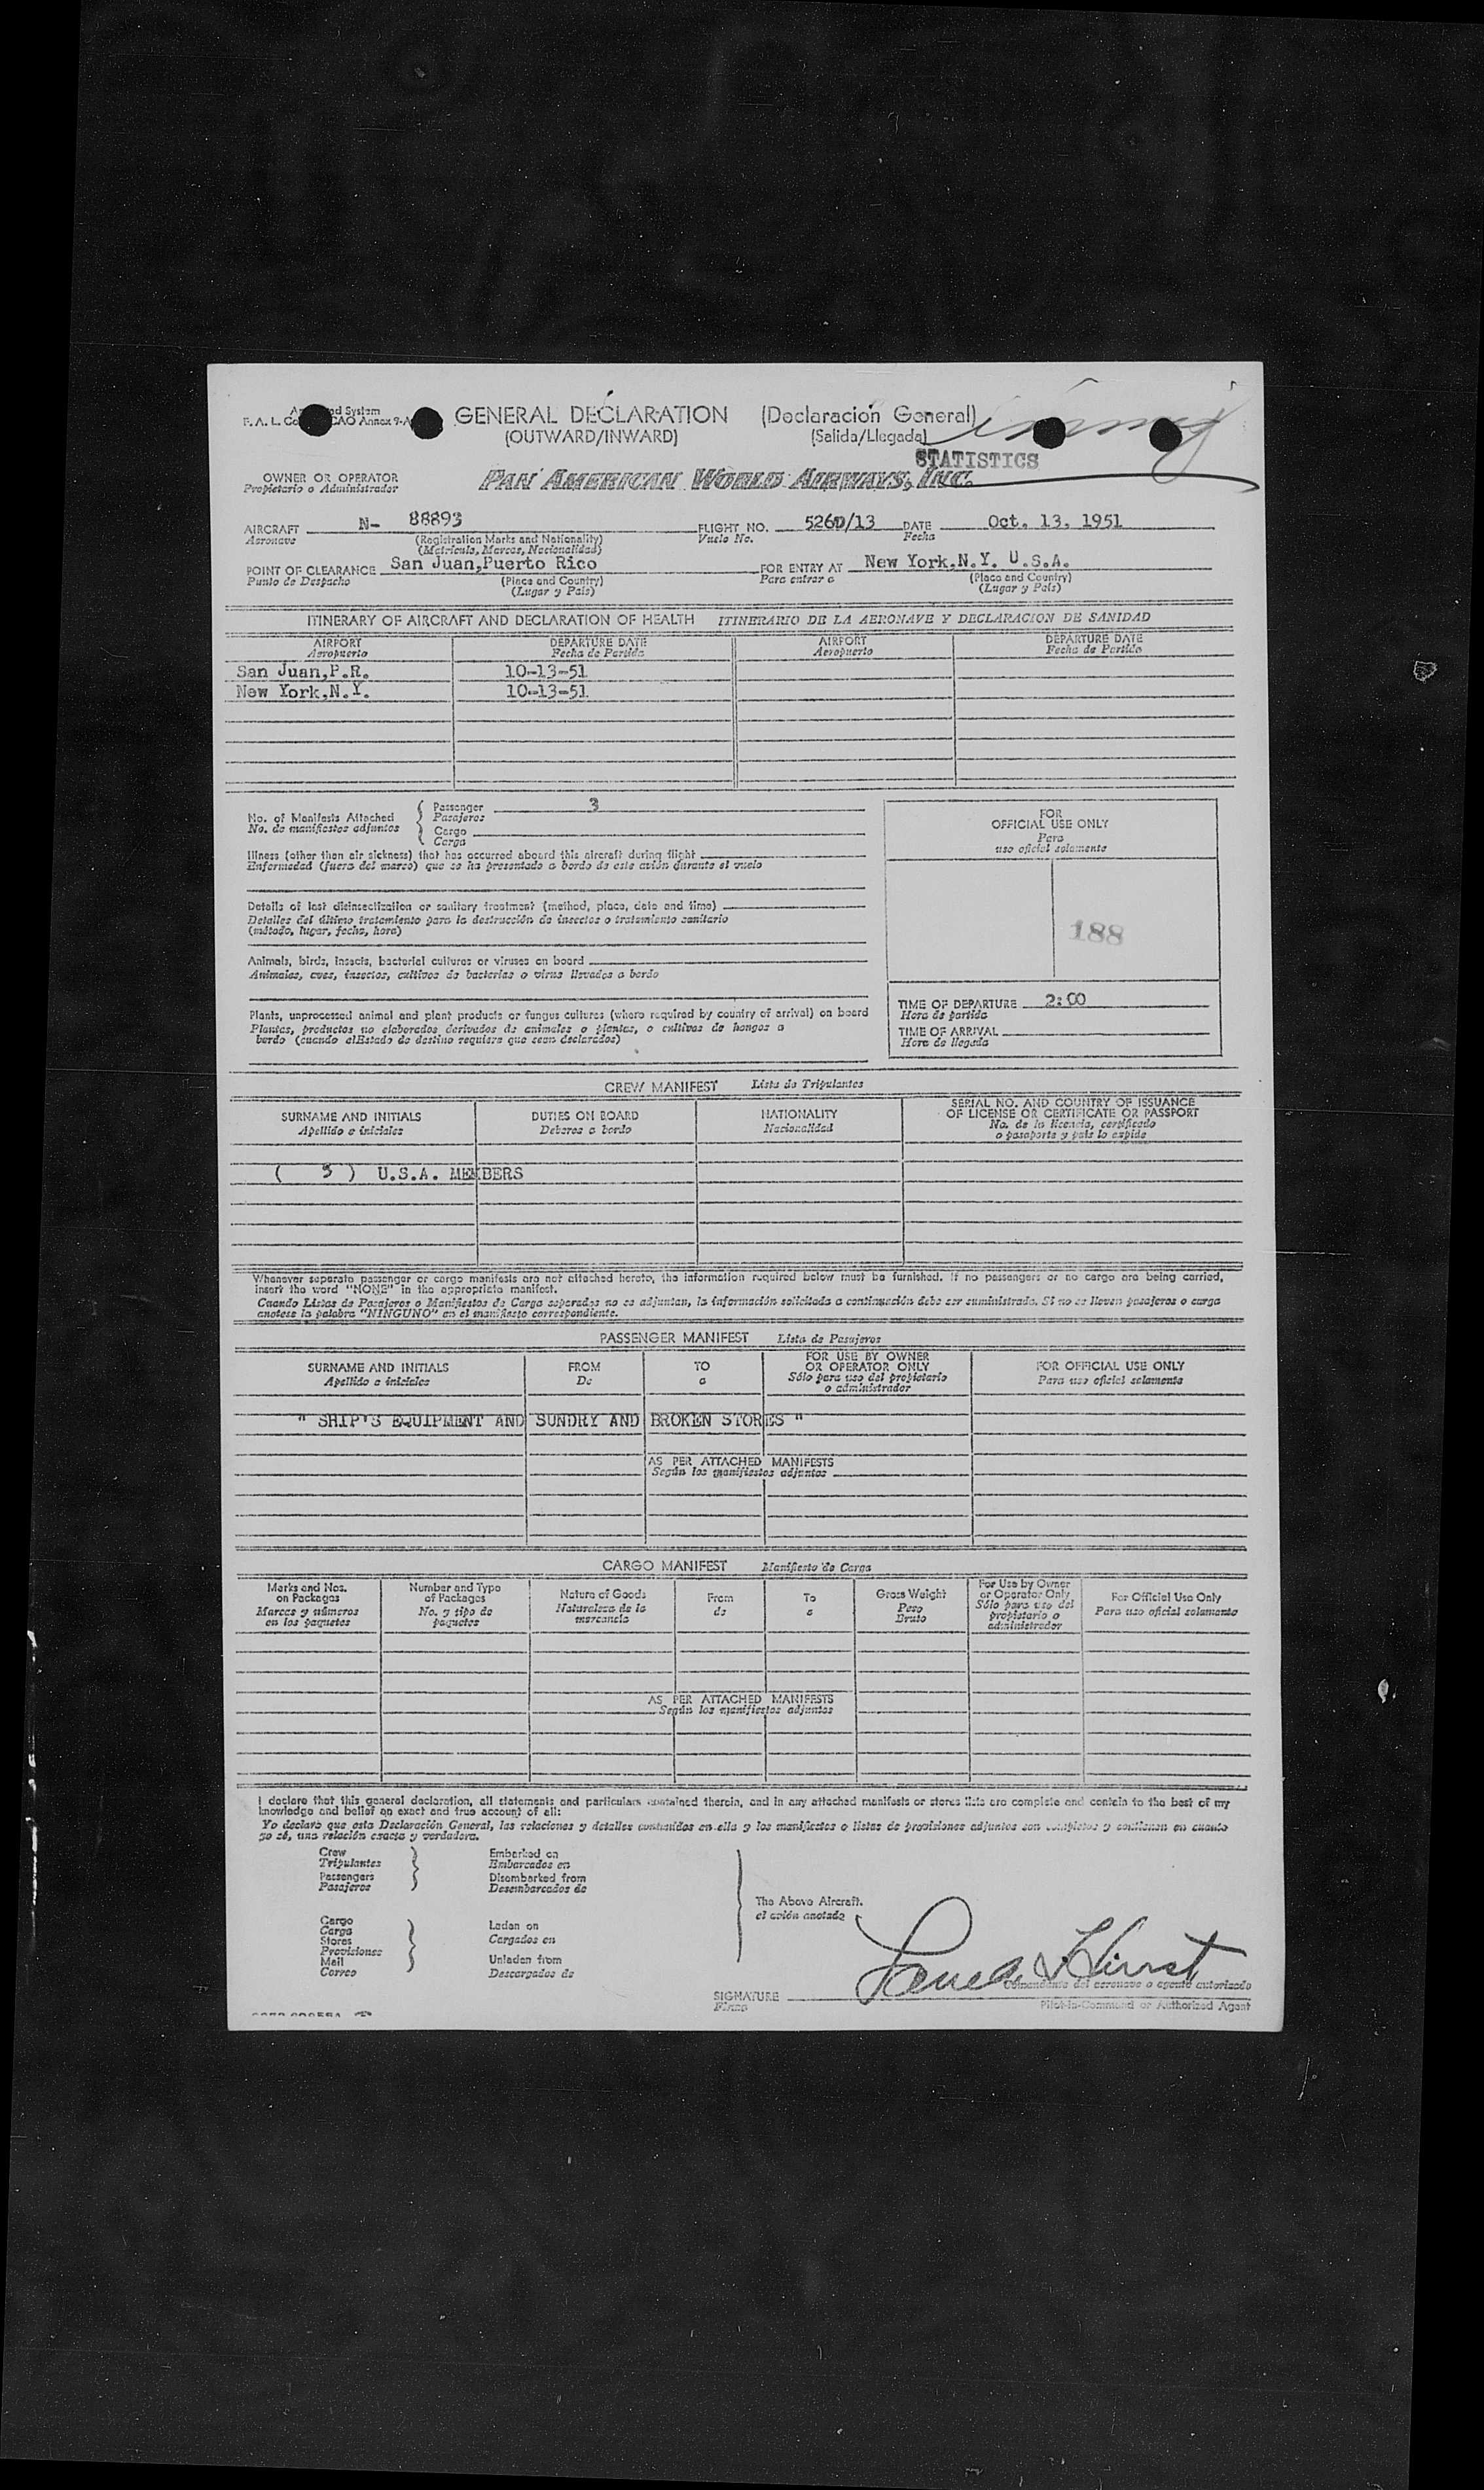 GENERAL DECLARATION (Declaración General)
(OUTWARD/INWARD) (Salida/Llegada)
STATISTICS
OWNER OR OPERATOR
Propietario o Administrador
PAN AMERICAN WORLD AIRWAYS, INC.
AIRCRAFT N- 88893 FLIGHT NO. 526D/13 DATE Oct. 13. 1951
Aeronave (Registration Marks and Nationality) Vuelo No. Fecha
(Matrícula, Marcas, Nacionalidad)
POINT OF CLEARANCE San Juan,Puerto Rico FOR ENTRY AT New York,N.Y. U.S.A.
Punto de Despacho (Place and Country) Para entrar a (Place and Country)
(Lugar y País) (Lugar y País)
ITINERARY OF AIRCRAFT AND DECLARATION OF HEALTH ITINERARIO DE LA AERONAVE Y DECLARACION DE SANIDAD
AIRPORT DEPARTURE DATE AIRPORT DEPARTURE DATE
Aeropuerto Fecha de Partida Aeropuerto Fecha de Partida
San Juan,P.R. 10-13-51
New York,N.Y. 10-13-51
No. of Manifests Attached Passenger 3
No. de manifiestos adjuntos Pasajeros
Cargo
Carga
FOR
OFFICIAL USE ONLY
Para
uso oficial solamente
Illness (other than air sickness) that has occurred aboard this aircraft during flight
Enfermedad (fuera del mareo) que se ha presentado a bordo de este avión durante el vuelo
Details of last disinsectization or sanitary treatment (method, place, date and time)
Detalles del último tratamiento para la destrucción de insectos o tratamiento sanitario
(método, lugar, fecha, hora)
188
Animals, birds, insects, bacterial cultures or viruses on board
Animales, aves, insectos, cultivos de bacterias o virus llevados a bordo
TIME OF DEPARTURE 2:00
Hora de partida
TIME OF ARRIVAL
Hora de llegada
Plants, unprocessed animal and plant products or fungus cultures (where required by country of arrival) on board
Plantas, productos no elaborados derivados de animales o plantas, o cultivos de hongos a
bordo (cuando elEstado de destino requiera que sean declarados)
CREW MANIFEST Lista de Tripulantes
SURNAME AND INITIALS DUTIES ON BOARD NATIONALITY SERIAL NO. AND COUNTRY OF ISSUANCE
OF LICENSE OR CERTIFICATE OR PASSPORT
Apellido e iniciales Deberes a bordo Nacionalidad No. de la licencia, certificado
o pasaporte y país lo expide
( 5 ) U.S.A. MEMBERS
Whenever separate passenger or cargo manifests are not attached hereto, the information required below must be furnished. If no passengers or no cargo are being carried,
insert the word "NONE" in the appropriate manifest.
Cuando Listas de Pasajeros o Manifiestos de Carga separados no se adjuntan, la información solicitada a continuación debe ser suministrada. Si no se llevan pasajeros o carga
anotese la palabra "NINGUNO" en el manifiesto correspondiente.
PASSENGER MANIFEST Lista de Pasajeros
SURNAME AND INITIALS FROM TO FOR USE BY OWNER
OR OPERATOR ONLY FOR OFFICIAL USE ONLY
Apellido e iniciales De a Sólo para uso del propietario
o administrador Para uso oficial solamente
" SHIP'S EQUIPMENT AND SUNDRY AND BROKEN STORES "
AS PER ATTACHED MANIFESTS
Según los manifiestos adjuntos
CARGO MANIFEST Manifiesto de Carga
Marks and Nos.
on Packages
Marcas y números
en los paquetes
Number and Type
of Packages
No. y tipo de
paquetes
Nature of Goods
Naturaleza de la
mercancía
From
de
To
a
Gross Weight
Peso
Bruto
For Use by Owner
or Operator Only
Sólo para uso del
propietario o
administrador
For Official Use Only
Para uso oficial solamente
AS PER ATTACHED MANIFESTS
Según los manifiestos adjuntos
I declare that this general declaration, all statements and particulars contained therein, and in any attached manifests or stores lists are complete and contain to the best of my
knowledge and belief an exact and true account of all:
Yo declaro que esta Declaración General, las relaciones y detalles contenidos en ella y los manifiestos o listas de provisiones adjuntos son completos y contienen en cuanto
yo sé, una relación exacta y verdadera.
Crew Embarked on
Tripulantes Embarcados en
Passengers Disembarked from
Pasajeros Desembarcados de
The Above Aircraft.
el avión anotado
Cargo
Carga Laden on
Stores Cargados en
Provisiones
Mail Unladen from
Correo Descargados de
Comandante del aeronave o agente autorizado
SIGNATURE
Firma Pilot-in-Command or Authorized Agent